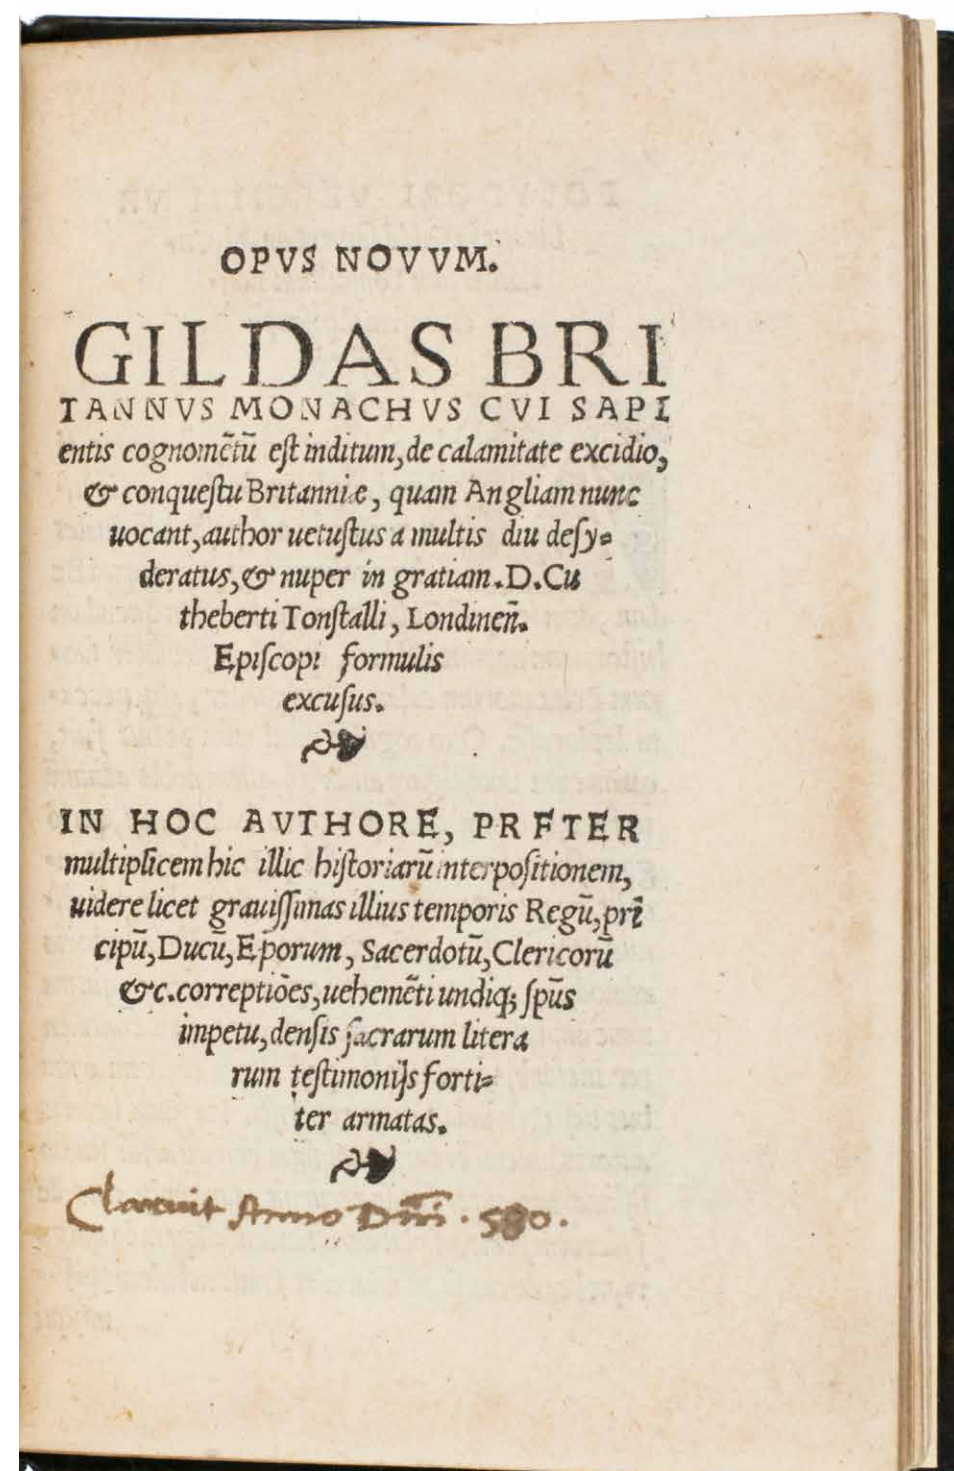 OPVS NOVVM.
GILDAS BRI
TANNVS MONACHVS CVI SAPI
entis cognomẽtũ eſt inditum, de calamitate excidio,
& conqueſtu Britanniæ, quam Angliam nunc
uocant, author uetuſtus a multis diu deſy⸗
deratus, & nuper in gratiam. D. Cu
theberti Tonſtalli, Londineñ.
Epiſcopi formulis
excuſus.
IN HOC AVTHORE, PRETER
multiplicem hic illic hiſtoriarũ interpoſitionem,
uidere licet grauiſſimas illius temporis Regũ, prĩ
cipũ, Ducũ, Ep̃orum, Sacerdotũ, Clericorũ
&c. correptiões, uehemẽti undiq; ſpũs
impetu, denſis ſacrarum litera
rum teſtimonijs forti⸗
ter armatas.
Claruit Anno Dñi. 580.